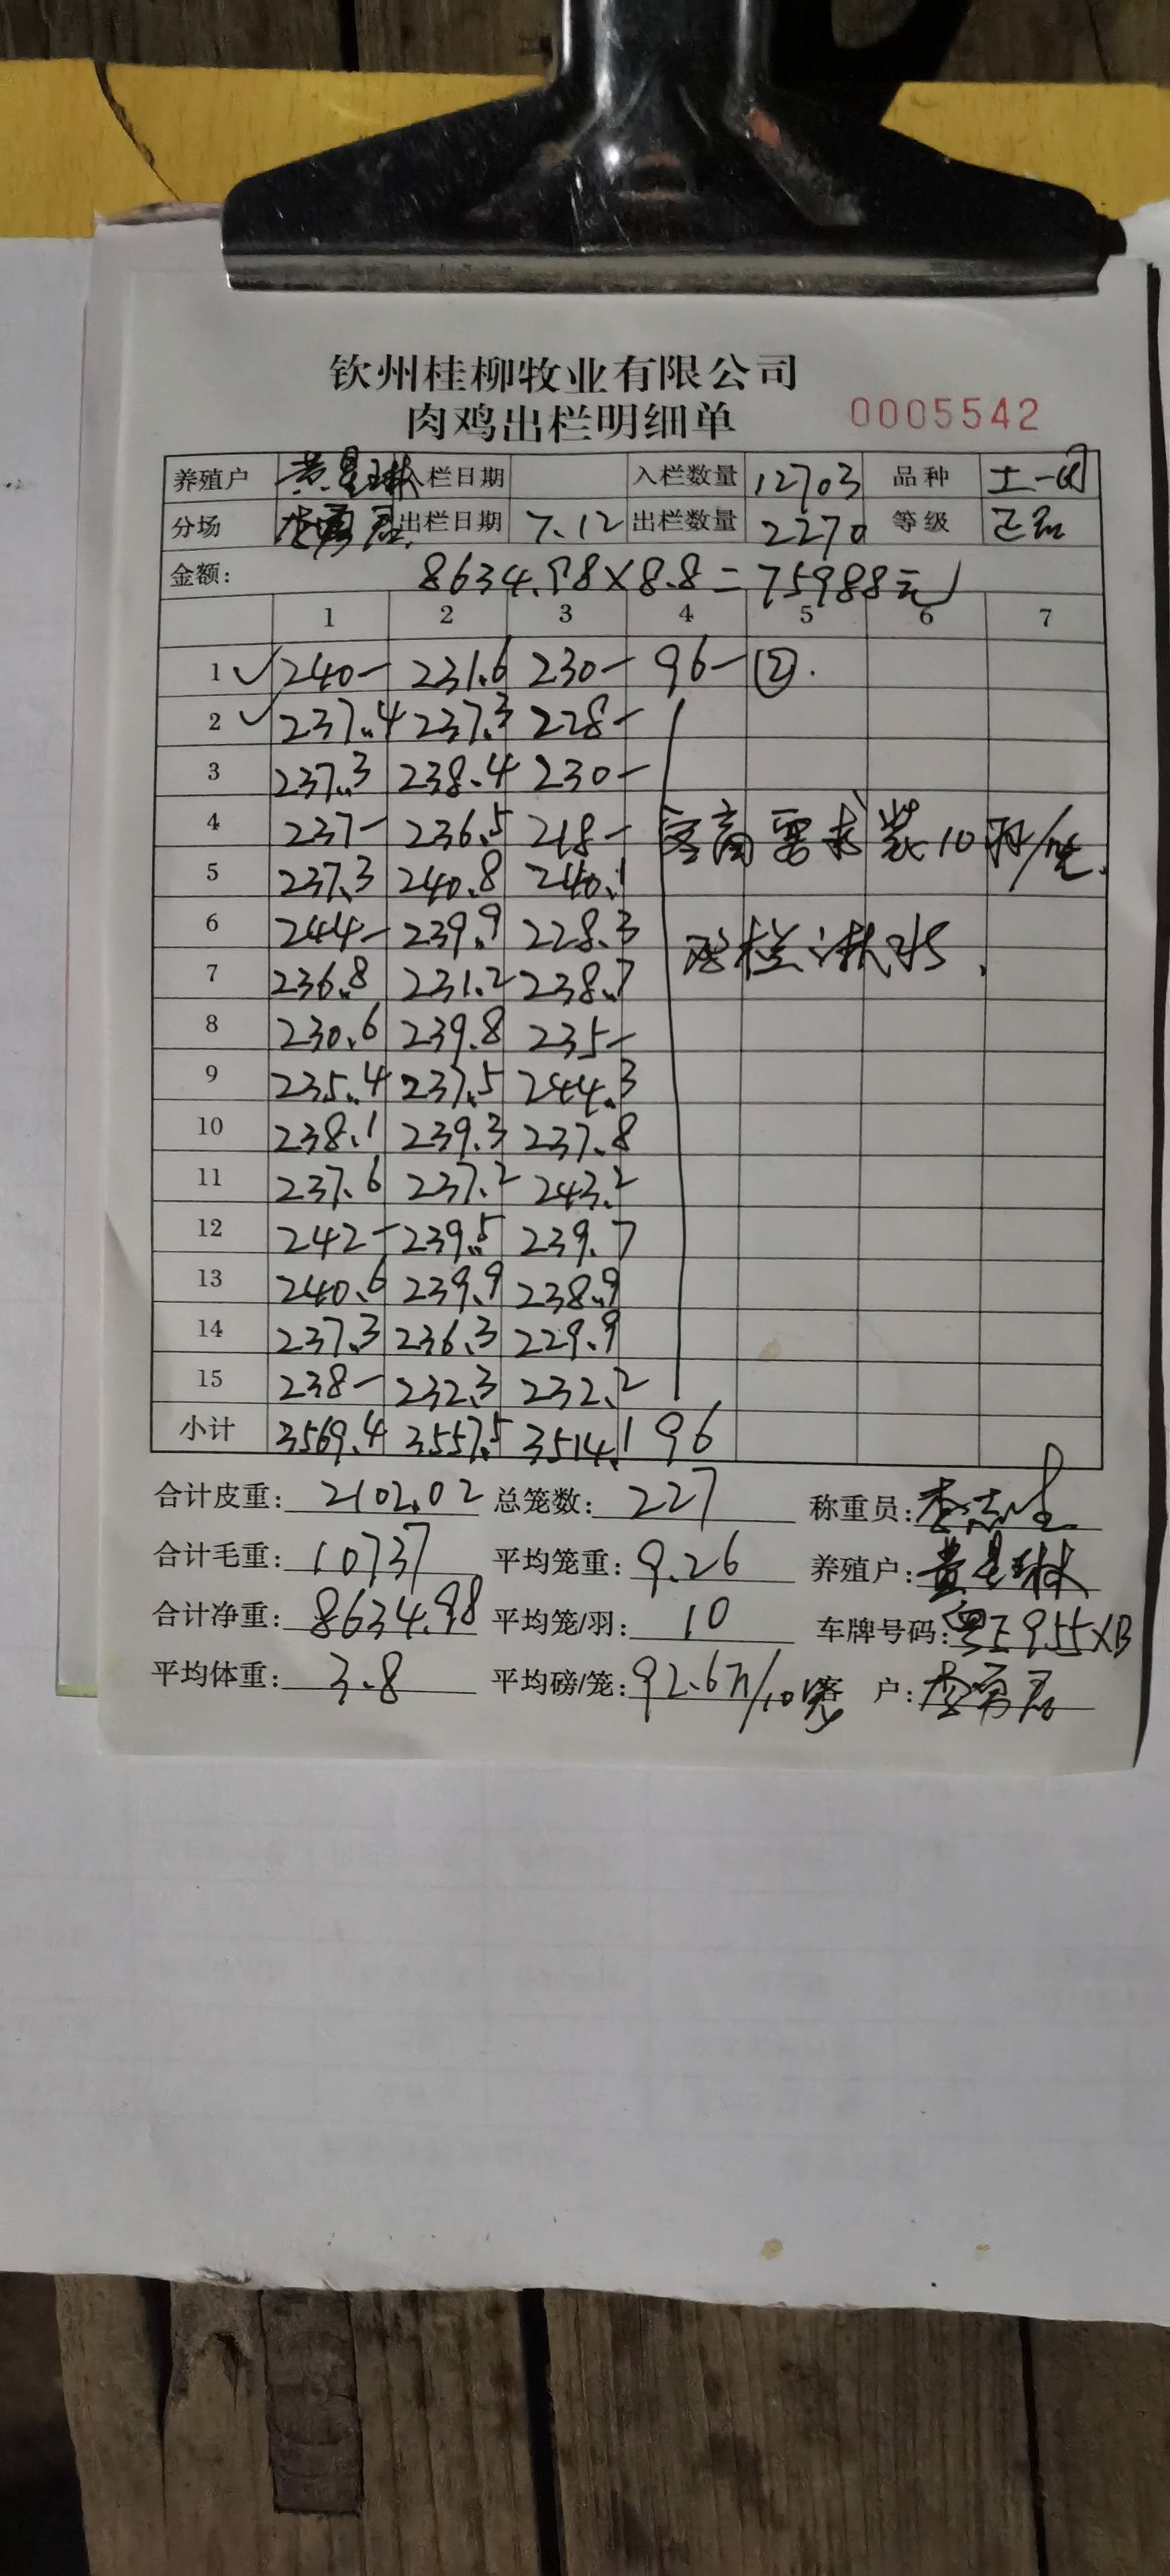 钦州桂柳牧业有限公司
肉鸡出栏明细单 0005542
养殖户 黄星琳 栏日期 入栏数量 12703 品种 土一
分场 李勇君 出栏日期 7.12 出栏数量 2270 等级 正品
金额: 8634.98×8.8=75988元
1 2 3 4 5 6 7
1 ✓ 240- 231.6 230- 96- ②.
2 ✓ 237.4 237.3 228-
3 237.3 238.4 230-
4 237- 236.5 218- 客商要求装10羽/笼.
5 237.3 240.8 240.1
6 244- 239.9 228.3 栏淋水.
7 236.8 231.2 238.7
8 230.6 239.8 235-
9 235.4 237.5 244.3
10 238.1 239.3 237.8
11 237.6 237.2 243.2
12 242- 239.5 239.7
13 240.6 239.9 238.9
14 237.3 236.3 229.9
15 238- 232.3 232.2
小计 3569.4 3557.5 3514.1 96
合计皮重: 2102.02 总笼数: 227 称重员: 李志
合计毛重: 10737 平均笼重: 9.26 养殖户: 黄星琳
合计净重: 8634.98 平均笼/羽: 10 车牌号码: 粤E955XB
平均体重: 3.8 平均磅/笼: 92.6斤/10 客 户: 李勇君